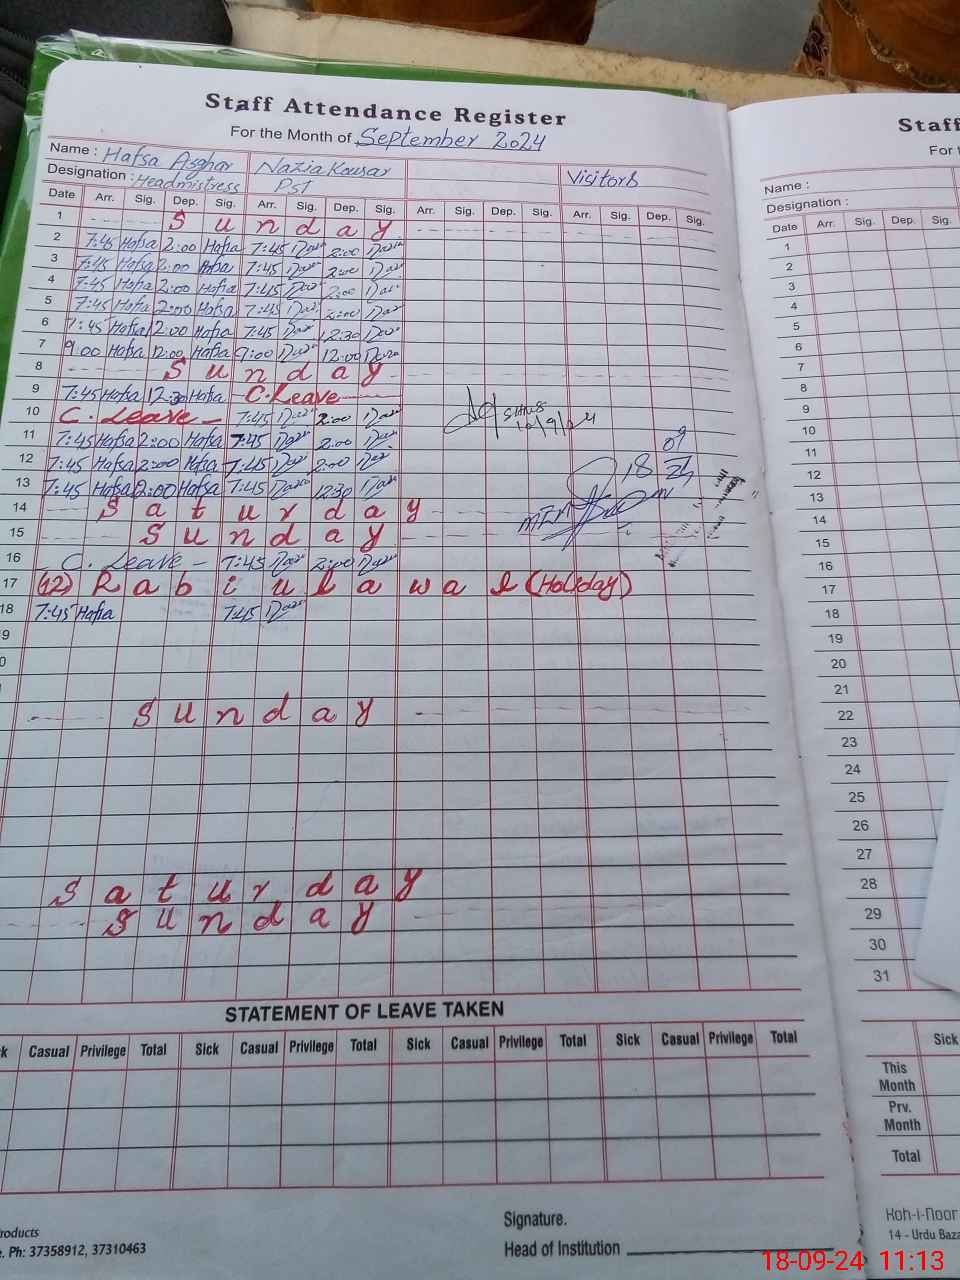 Staff Attendance Register
For the Month of September 2024
Name : Hafsa Asghar Nazia Kousar
Designation : Headmistress PST Visitors
Date Arr. Sig. Dep. Sig. Arr. Sig. Dep. Sig. Arr. Sig. Dep. Sig. Arr. Sig. Dep. Sig.
1 Sunday
2 7:45 Hafsa 2:00 Hafsa 7:45 2:00
3 7:45 Hafsa 2:00 Hafsa 7:45 2:00
4 7:45 Hafsa 2:00 Hafsa 7:45 2:00
5 7:45 Hafsa 2:00 Hafsa 7:45 2:00
6 7:45 Hafsa 2:00 Hafsa 7:45 12:30
7 9:00 Hafsa 12:00 Hafsa 9:00 12:00
8 Sunday
9 7:45 Hafsa 12:30 Hafsa C.Leave
10 C. Leave - 7:45 2:00 10/9/24
11 7:45 Hafsa 2:00 Hafsa 7:45 2:00
12 7:45 Hafsa 2:00 Hafsa 7:45 2:00 18 09
13 7:45 Hafsa 2:00 Hafsa 7:45 12:30
14 Saturday
15 Sunday
16 C. Leave - 7:45 2:00
17 (12) Rabi ul awal (Holiday)
18 7:45 Hafsa 7:45
9
0
Sunday
Saturday
Sunday
STATEMENT OF LEAVE TAKEN
k Casual Privilege Total Sick Casual Privilege Total Sick Casual Privilege Total Sick Casual Privilege Total
Signature.
Head of Institution
roducts
e. Ph: 37358912, 37310463
Staff
For t
Name :
Designation :
Date Arr. Sig. Dep. Sig.
1
2
3
4
5
6
7
8
9
10
11
12
13
14
15
16
17
18
19
20
21
22
23
24
25
26
27
28
29
30
31
Sick
This Month
Prv. Month
Total
Koh-i-Noor
14 - Urdu Baza
18-09-24 11:13